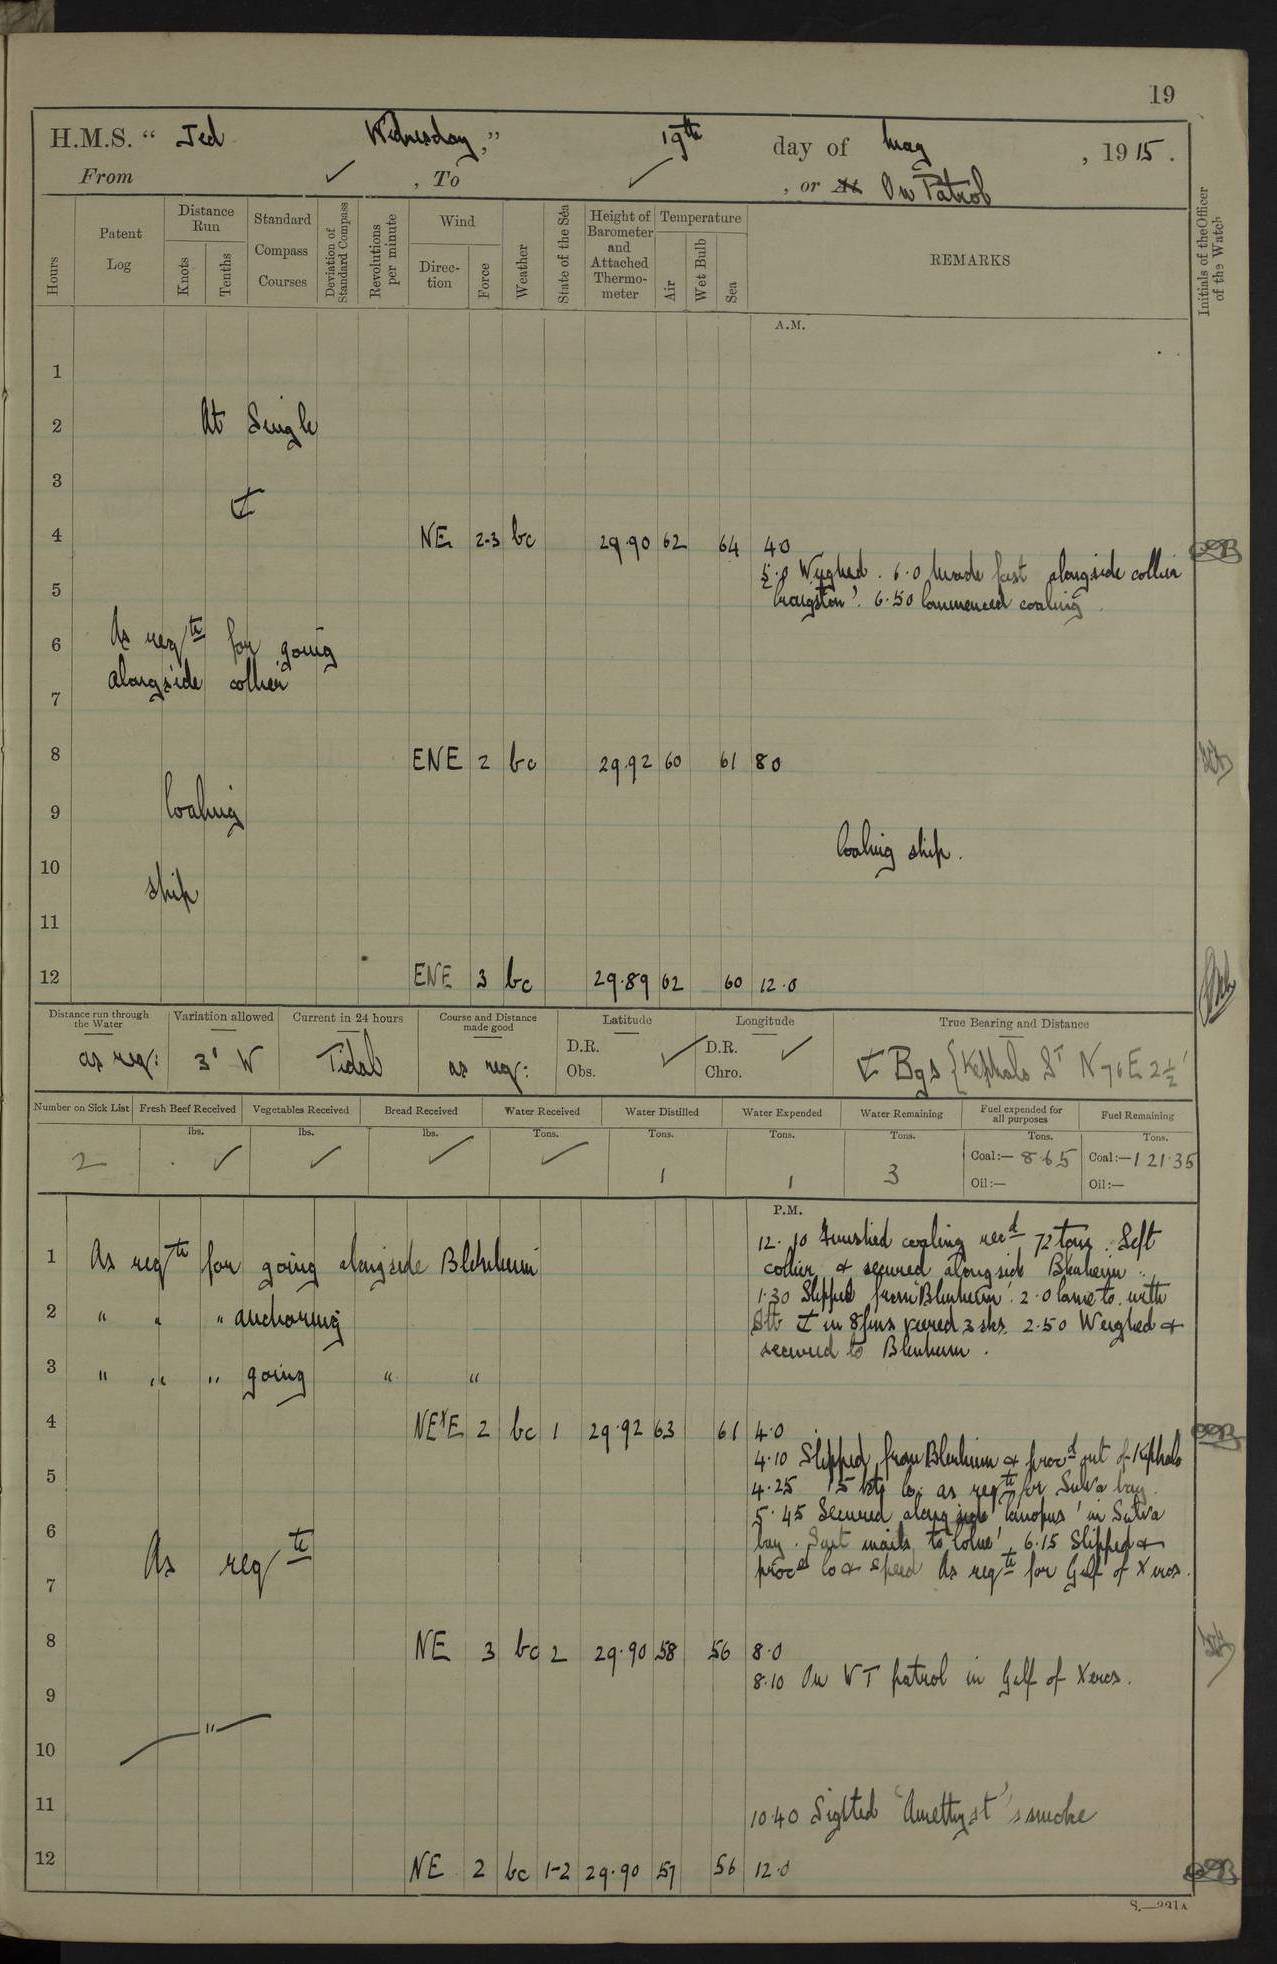 19
H.M.S. " Jed Wednesday ," 19th day of May , 1915.
From ✓ , To ✓ , or At On Patrol
Hours
Patent Log
Distance Run
Knots
Tenths
Standard Compass Courses
Deviation of Standard Compass
Revolutions per minute
Wind
Direc-tion
Force
Weather
State of the Sea
Height of Barometer and Attached Thermo-meter
Temperature
Air
Wet Bulb
Sea
REMARKS
Initials of the Officer of the Watch
A.M.
1
2 At Single
3
4 NE 2-3 bc 29.90 62 64 4.0
5.0 Weighed . 6.0 Made fast alongside collier
5 'Craigston'. 6.50 Commenced coaling .
6 As reqte for going
alongside collier
7
8 ENE 2 bc 29.92 60 61 8.0
9 Coaling
Coaling ship.
10 ship
11
12 ENE 3 bc 29.89 62 60 12.0
Distance run through the Water
Variation allowed
Current in 24 hours
Course and Distance made good
Latitude
Longitude
True Bearing and Distance
as req: 3° W Tidal as req:
D.R.
Obs.
✓
D.R.
Chro.
✓
Bgs { Kephalo Lt N76E 2½'
Number on Sick List
Fresh Beef Received
Vegetables Received
Bread Received
Water Received
Water Distilled
Water Expended
Water Remaining
Fuel expended for all purposes
Fuel Remaining
lbs. lbs. lbs. Tons. Tons. Tons. Tons. Tons. Tons.
2 ✓ ✓ ✓ ✓ 1 1 3
Coal:— 8.65 Coal:— 121.35
Oil:— Oil:—
P.M.
12.10 Finished coaling recd 72 tons. Left
1 As reqte for going alongside Blenheim
collier & secured alongside Blenheim.
1.30 Slipped from 'Blenheim'. 2.0 Came to with
2 " " " anchoring
in 8 fms veered 3 shs. 2.50 Weighed &
secured to Blenheim.
3 " " " going " "
4 NExE 2 bc 1 29.92 63 61 4.0
4.10 Slipped from Blenheim & procd out of Kephalo
5 4.25 15 kts Co. as reqte for Suvla bay
5.45 Secured alongside 'Canopus' in Suvla
6 bay. Sent mails to 'Colne'. 6.15 Slipped &
As reqte
7 procd Co & speed As reqte for Gulf of Xeros.
8 NE 3 bc 2 29.90 58 56 8.0
8.10 On VT patrol in Gulf of Xeros.
9
"
10
11 10.40 Sighted 'Amethyst's smoke
12 NE 2 bc 1-2 29.90 57 56 12.0
S.—321A